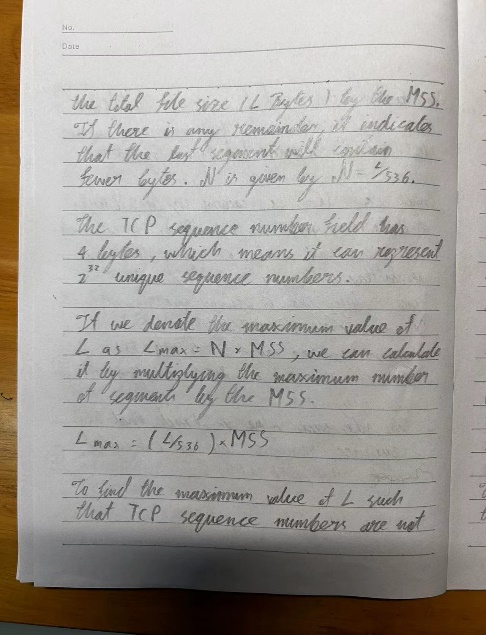 No.
Date
the total file size (L Bytes) by the MSS.
If there is any remainder, it indicates
that the last segment will contain
fewer bytes. N is given by N = L/536.
The TCP sequence number field has
4 bytes, which means it can represent
2^32 unique sequence numbers.
If we denote the maximum value of
L as Lmax = N × MSS, we can calculate
it by multiplying the maximum number
of segments by the MSS.
Lmax = (L/536) × MSS
To find the maximum value of L such
that TCP sequence numbers are not